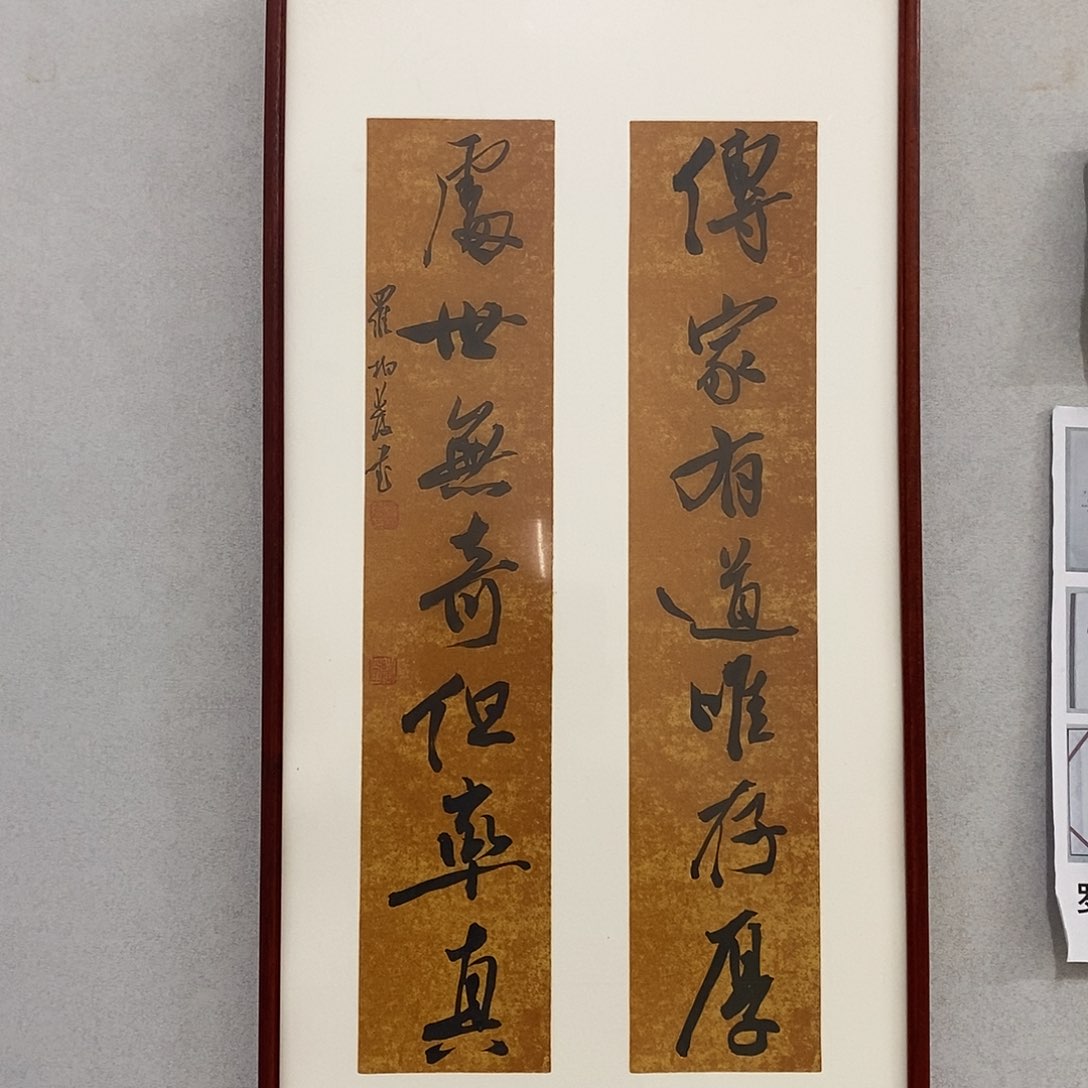 傳家有道唯存厚
處世無奇但率真
羅
書